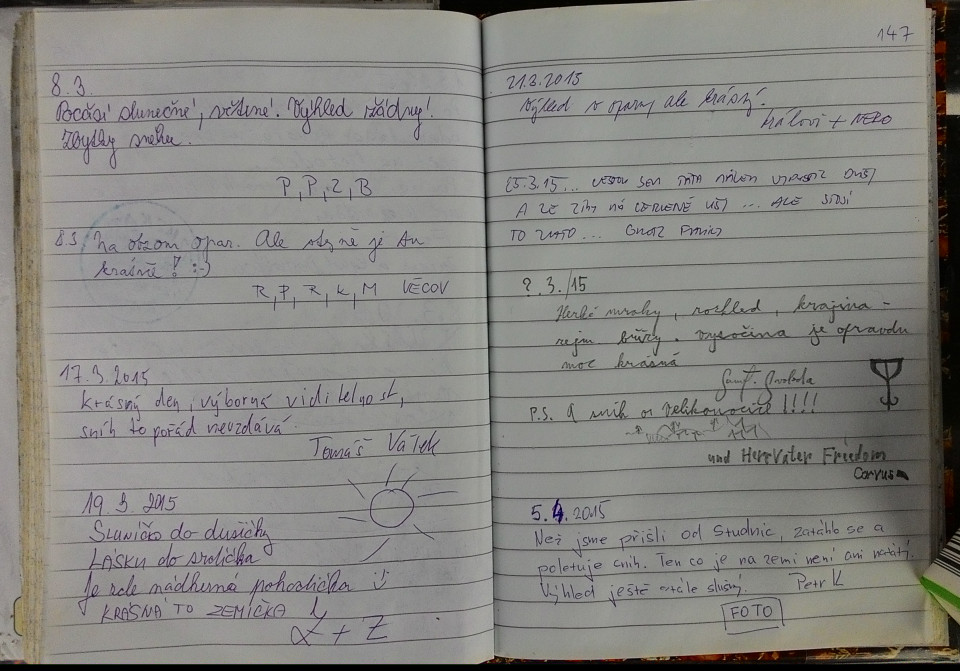 8.3.
Počasí slunečné, větrné. Výhled žádný!
Zbytky sněhu.
P, P, Z, B
8.3. Na obzoru opar. Ale stejně je tu
krásně! :-)
R, P, R, K, M VĚCOV
17.3.2015
Krásný den, výborná viditelnost,
sníh to pořád nevzdává
Tomáš Vátek
19.3.2015
SLUNÍČKO do dušičky
LÁSKU do srdíčka
Je zde nádherná pohodička
KRÁSNÁ TO ZEMIČKA
L + Z
147
21.3.2015
Výhled v oparu ale krásný.
Královi + NERO
25.3.15... SEM TÁTA MÁLEM VYPUSTIL DUŠI
A ZE ZIMY MÁ ČERVENÉ UŠI ... ALE STOJÍ
TO ZATO...
?.3./15
mraky, rozhled, krajina -
vysočina je opravdu
moc krásná
Svoboda
P.S. A sníh o Velikonocích !!!!
und Herr Vater Friedom
Corvus
5.4.2015
Než jsme přišli od Studnic, zatáhlo se a
poletuje sníh. Ten co je na zemi není ani natátý.
Výhled ještě stále slušný. Petr K
FOTO